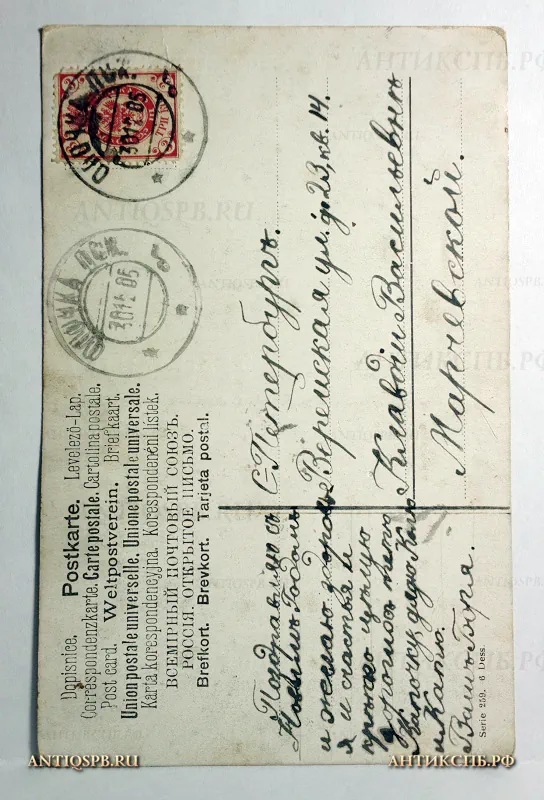 Dopisnice. Postkarte. Levelező-Lap.
Correspondenzkarte. Carte postale. Cartolina postale.
Post card. Weltpostverein. Briefkaart.
Union postale universelle. Unione postale universale.
Karta korespondencyjna. Korespondenční lístek.
ВСЕМІРНЫЙ ПОЧТОВЫЙ СОЮЗЪ.
РОССІЯ. ОТКРЫТОЕ ПИСЬМО.
Brefkort. Brevkort. Tarjeta postal.
ОПОЧКА ПСК.
30 12 05
ОПОЧКА ПСК.
30 12 05
С-Петербургъ.
Верейская ул. д. 23, кв. 14.
Клавдіи Васильевнѣ
Марчевской.
Поздравляю съ
Новымъ Годомъ
и желаю здоровь
я и счастья и
крѣпко цѣлую
Катю.
Serie 259. 6 Dess.
ANTIQSPB.RU
АНТИКСПБ.РФ
АНТИКСПБ.РФ
ANTIQSPB.RU